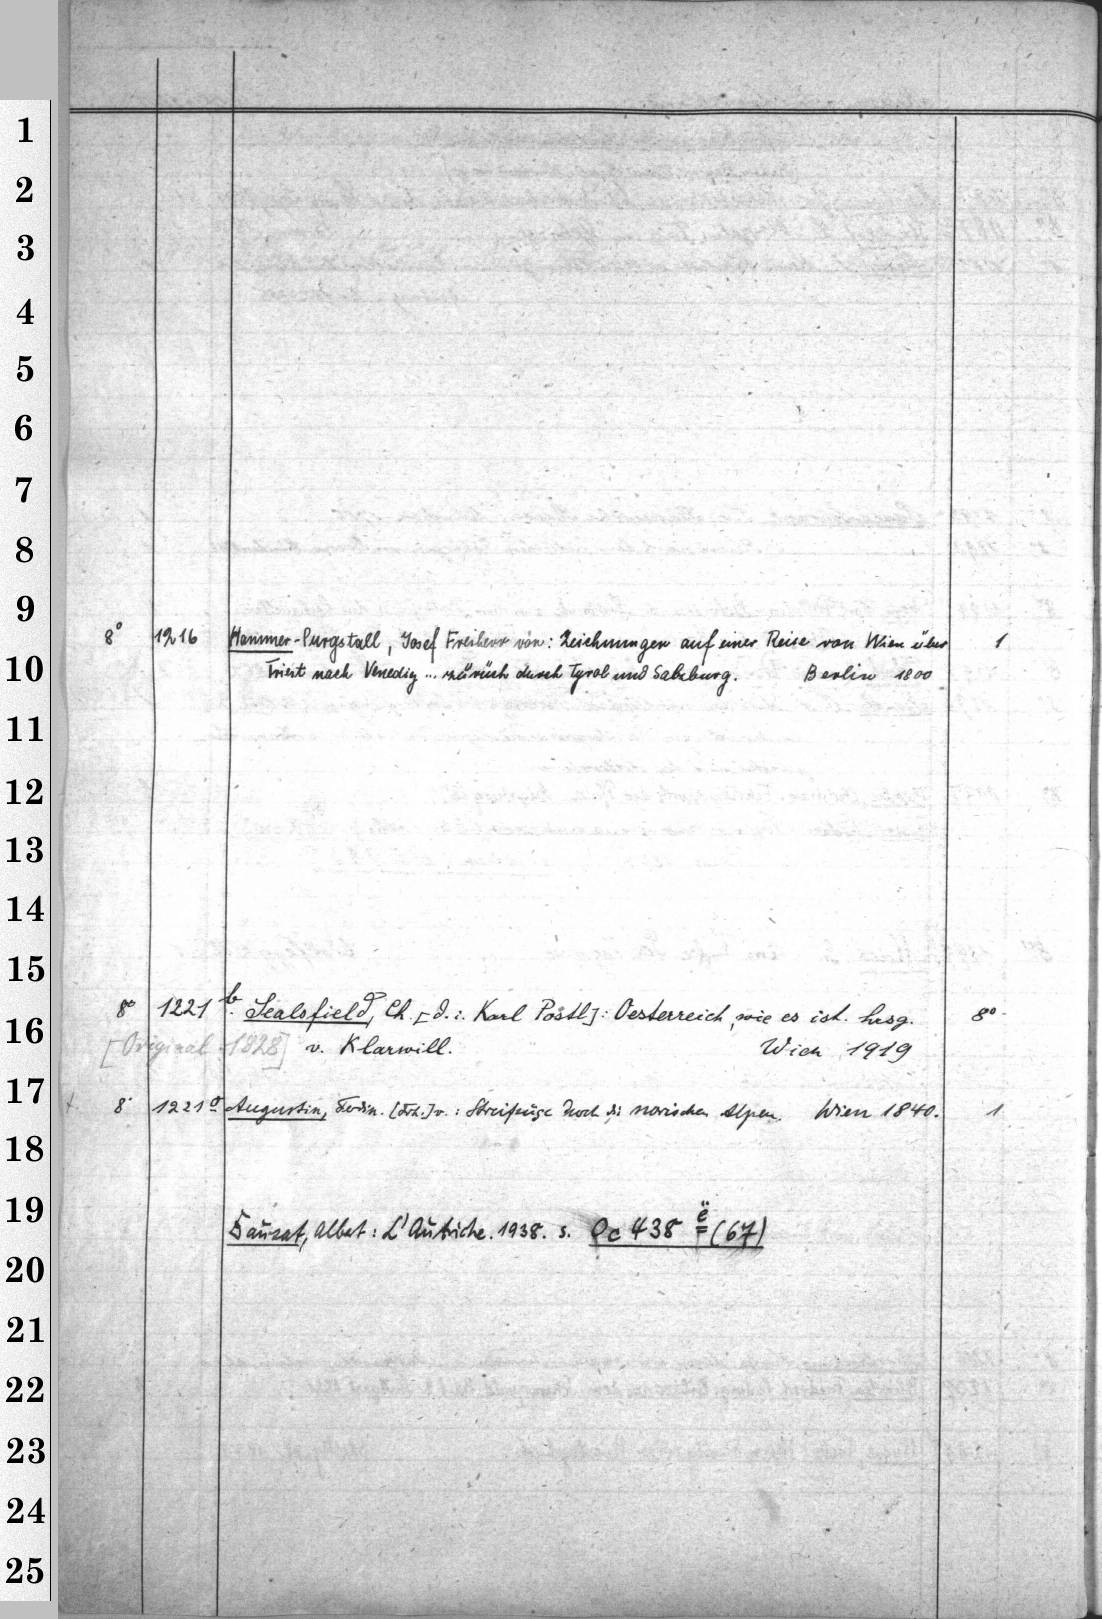 1
2
3
4
5
6
7
8
9
8° 1216 Hammer-Purgstall, Josef Freiherr von: Zeichnungen auf einer Reise von Wien über 1
10
Triest nach Venedig ... zurück durch Tyrol und Salzburg. Berlin 1800
11
12
13
14
15
8° 1221 b. Sealsfield, Ch. [d. i. Karl Postl]: Oesterreich, wie es ist. hrsg. 8°
16
[Original 1828] v. Klarwill. Wien 1919
17
8° 1221 a Augustin, Ferdin. [Frh.] v.: Streifzüge durch die norischen Alpen. Wien 1840. 1
18
19
Dauzat, Albert: L'Autriche. 1938. s. Oc 438 ë (67)
20
21
22
23
24
25